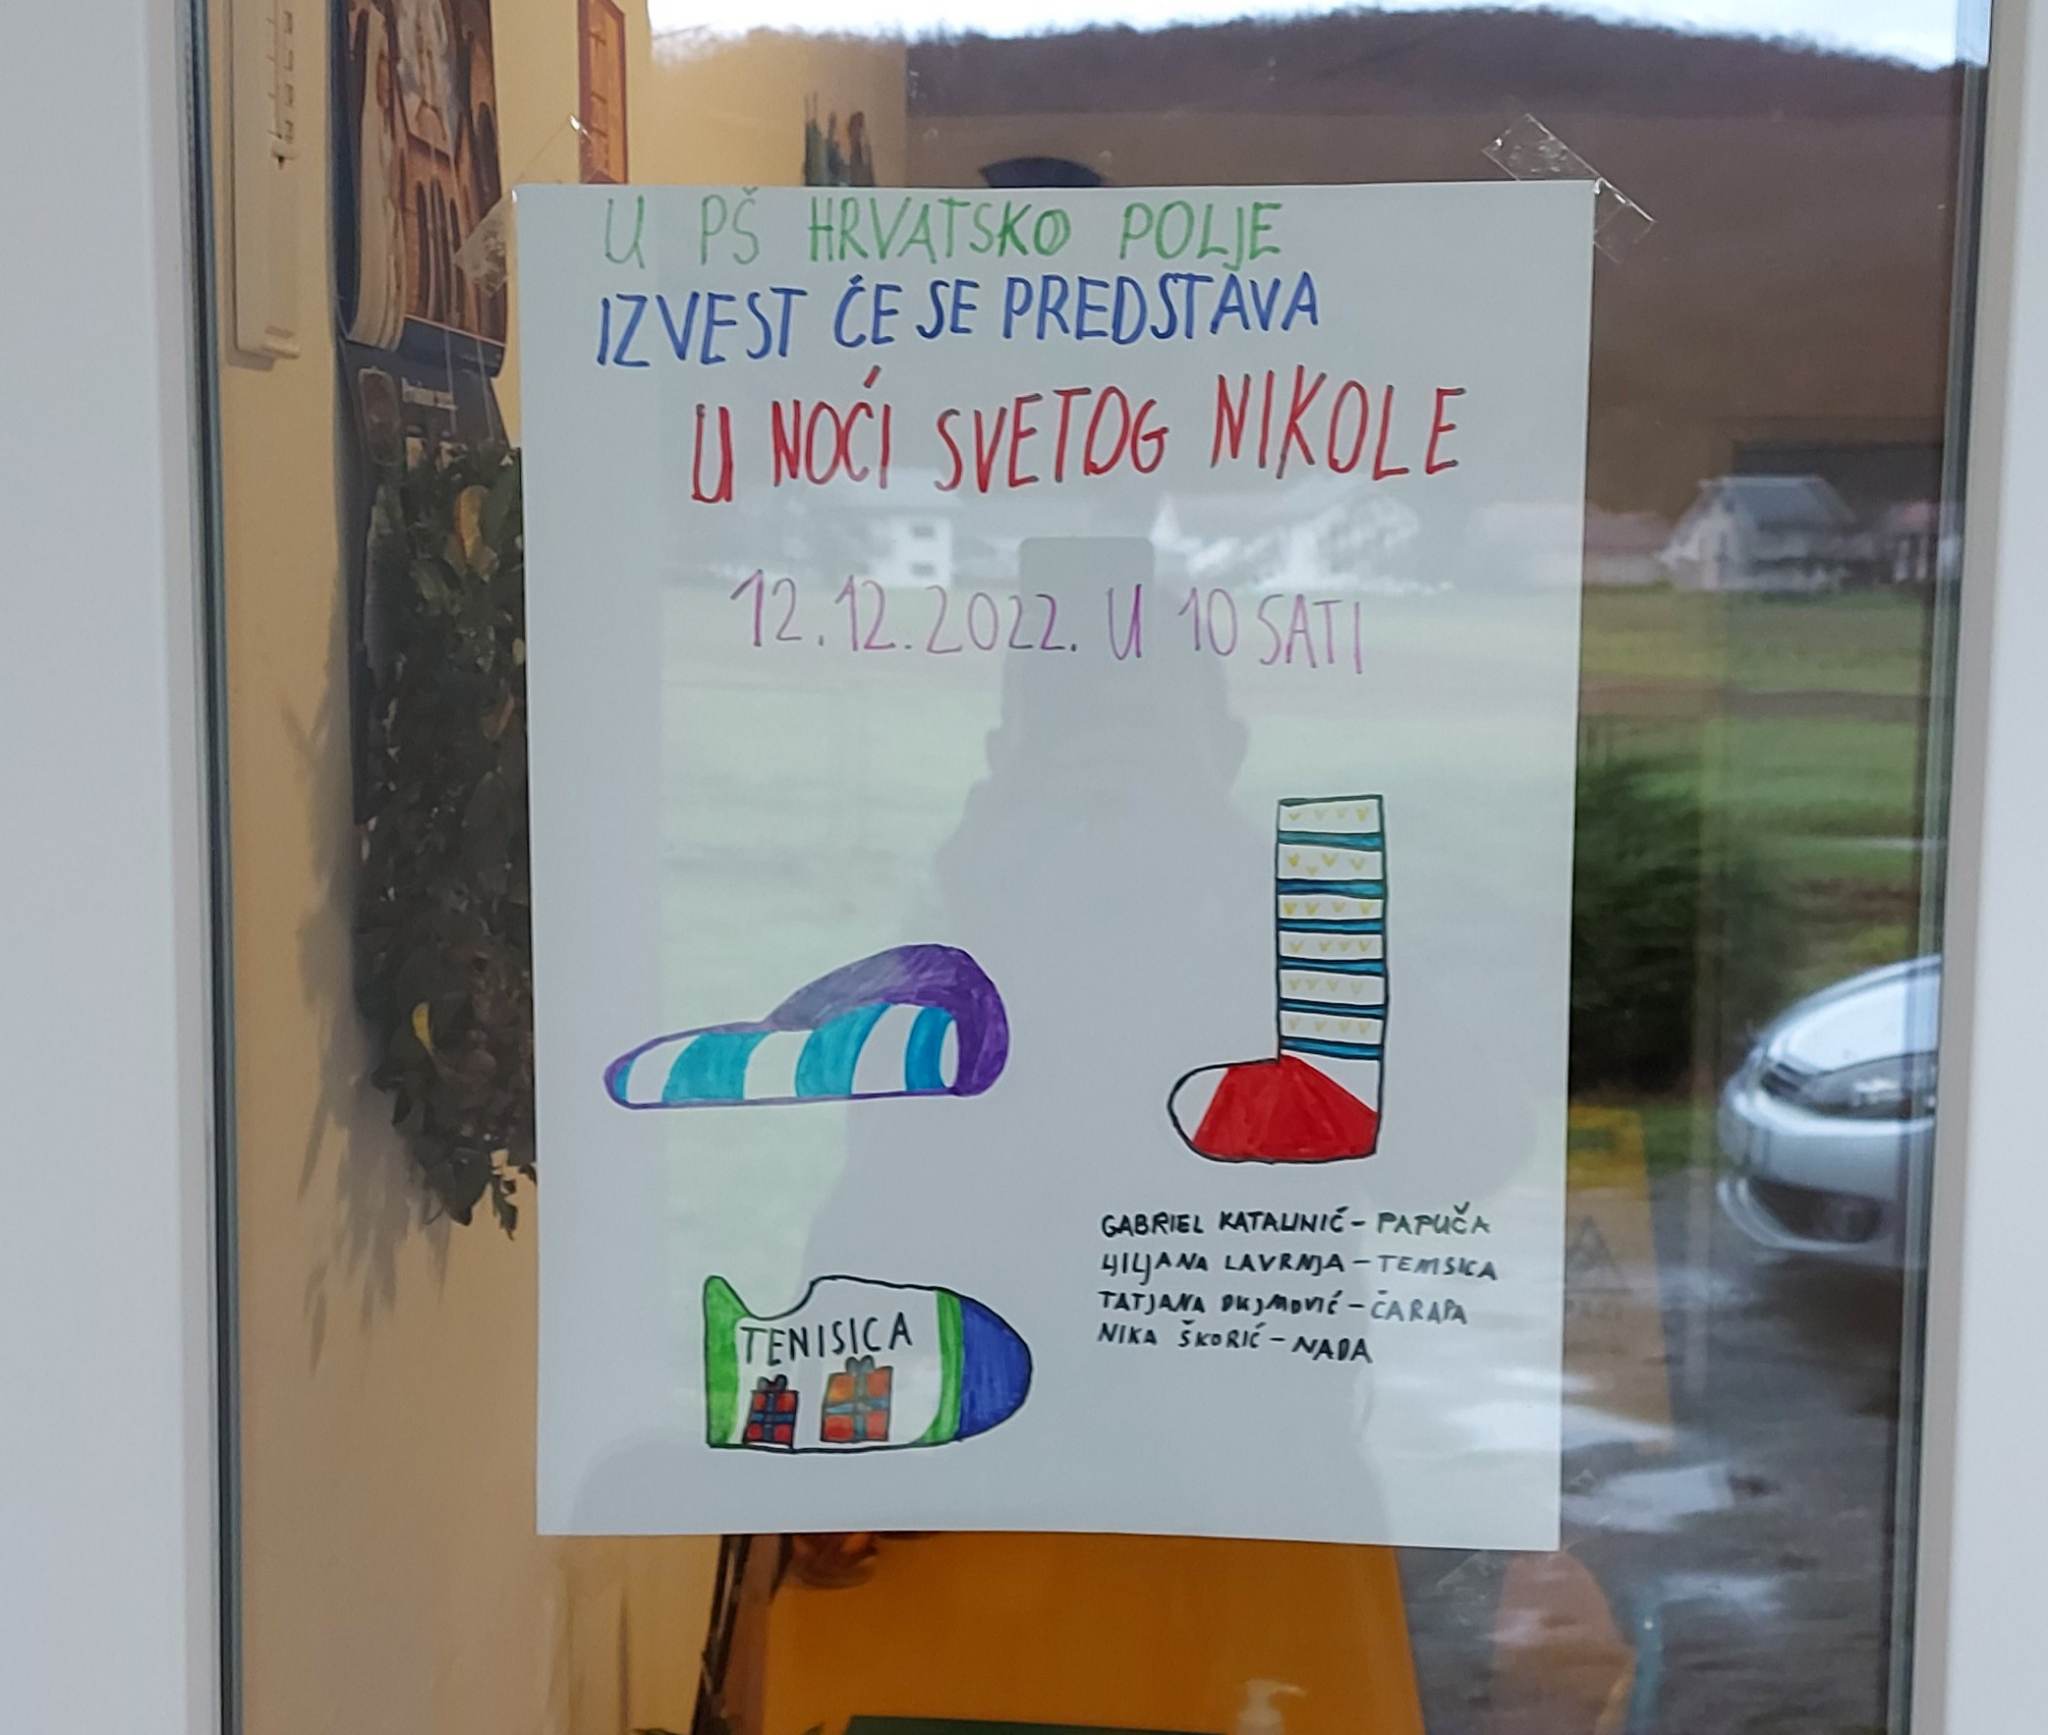 U PŠ HRVATSKO POLJE
IZVEST ĆE SE PREDSTAVA
U NOĆI SVETOG NIKOLE
12.12.2022. U 10 SATI
TENISICA
GABRIEL KATALINIĆ - PAPUČA
LJILJANA LAVRNJA - TENSICA
TATJANA DUJMOVIĆ - ČARAPA
NIKA ŠKORIĆ - NADA